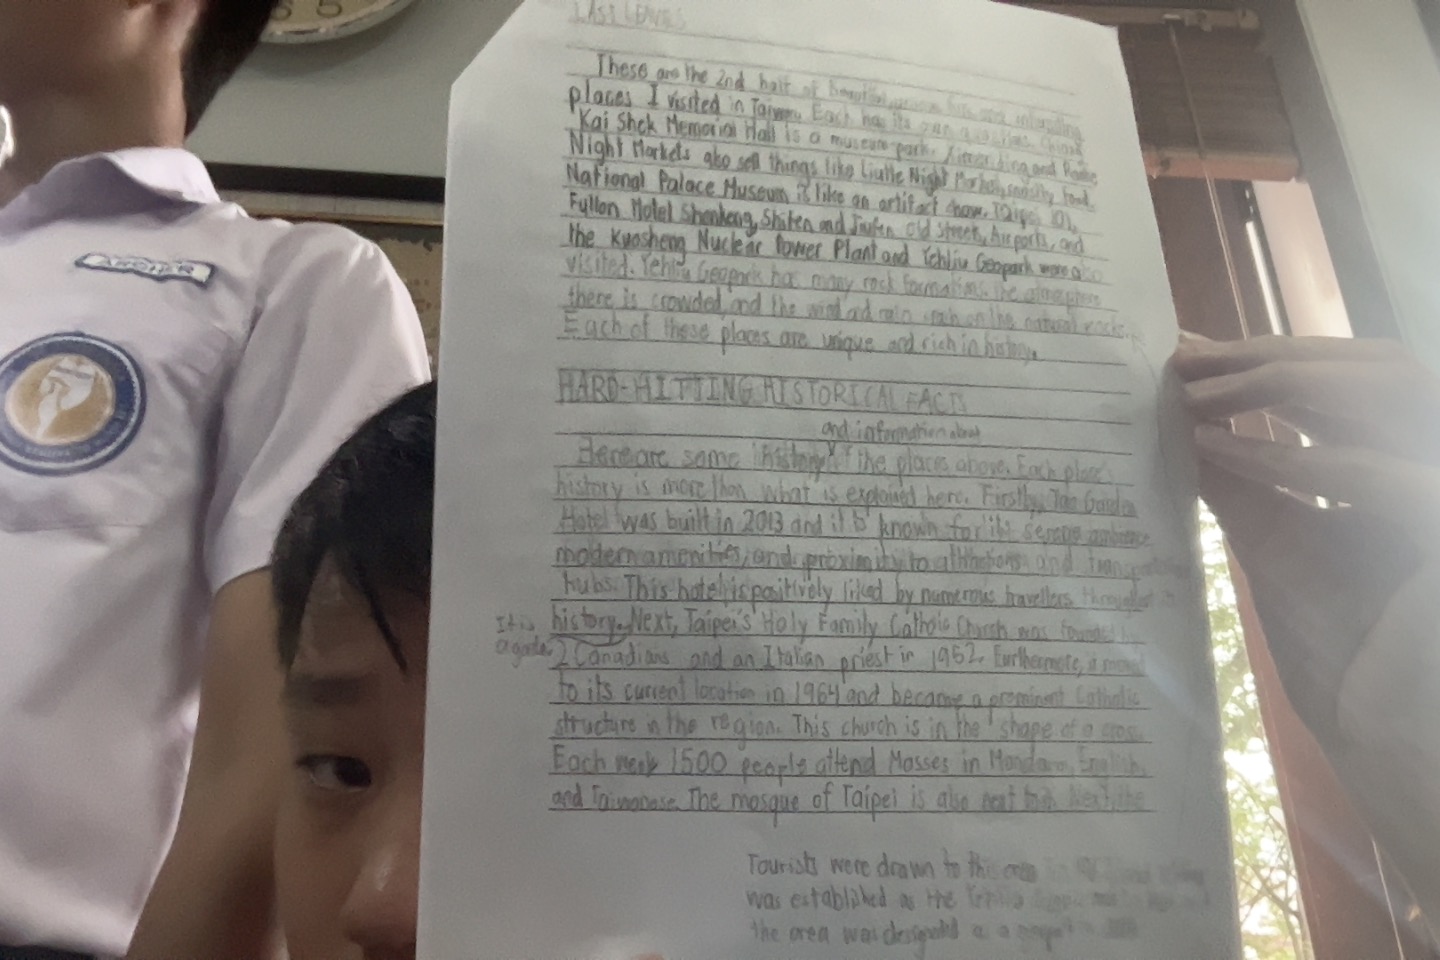 LAST LEAVES
These are the 2nd half of beautiful
places I visited in Taiwan. Each has its own attractions. Chiang
Kai Shek Memorial Hall is a museum-park. Ximending and Raohe
Night Markets also sell things like Liuhe Night Market, mostly food.
National Palace Museum is like an artifact show. Taipei 101,
Fullon Hotel Shenkeng, Shifen and Jiufen Old Street, Airports, and
the Kuosheng Nuclear Power Plant and Yehliu Geopark were also
visited. Yehliu Geopark has many rock formations. The atmosphere
there is crowded, and the wind ad rain on the natural rocks.
Each of these places are unique and rich in history.
HARD-HITTING HISTORICAL FACTS
and information about
Here are some history the places above. Each place's
history is more than what is explained here. Firstly, Tao Garden
Hotel was built in 2013 and it is known for its serene ambience
modern amenities, and proximity to attractions and
hubs. This hotel is positively liked by numerous travellers throughout its
It is history. Next, Taipei's Holy Family Catholic Church was founded by
2 Canadians and an Italian priest in 1952. Furthermore, it moved
to its current location in 1964 and became a prominent Catholic
structure in the region. This church is in the shape of a cross.
Each week 1500 people attend Masses in Mandarin, English,
and Taiwanese. The mosque of Taipei is also next to it. Next, the
Tourists were drawn to this area
was established as the
the area was designated as a
ARCHER
5